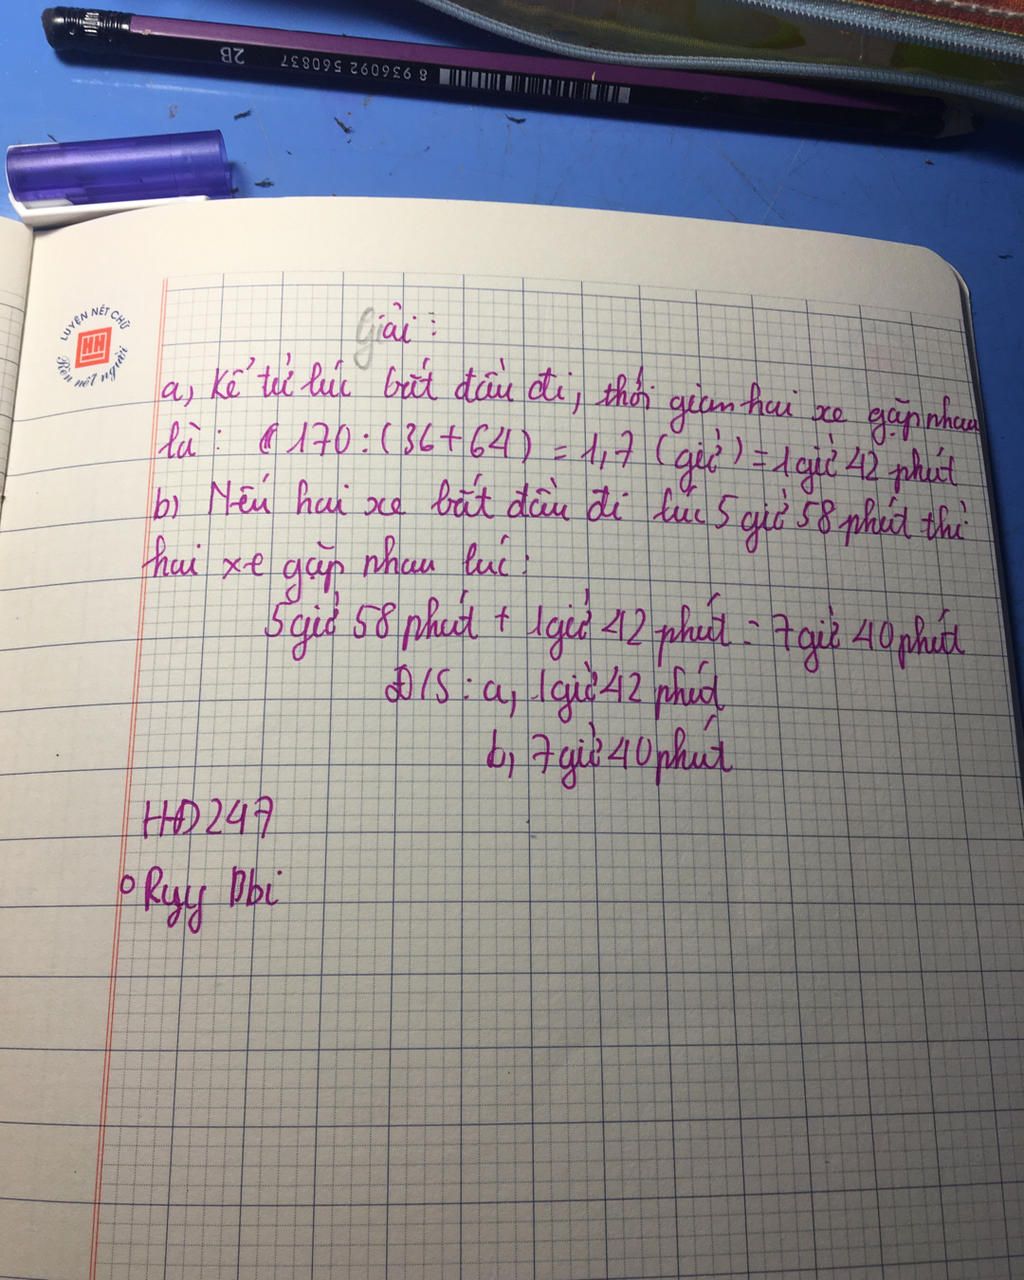 2B 8 936092 560837
LUYỆN NÉT CHỮ
HH
Rèn nết người
Giải:
a, Kể từ lúc bắt đầu đi, thời gian hai xe gặp nhau
là: 170 : (36 + 64) = 1,7 (giờ) = 1 giờ 42 phút
b) Nếu hai xe bắt đầu đi lúc 5 giờ 58 phút thì
hai xe gặp nhau lúc:
5 giờ 58 phút + 1 giờ 42 phút = 7 giờ 40 phút
Đ/S: a, 1 giờ 42 phút
b, 7 giờ 40 phút
HĐ247
Ryy Dbi